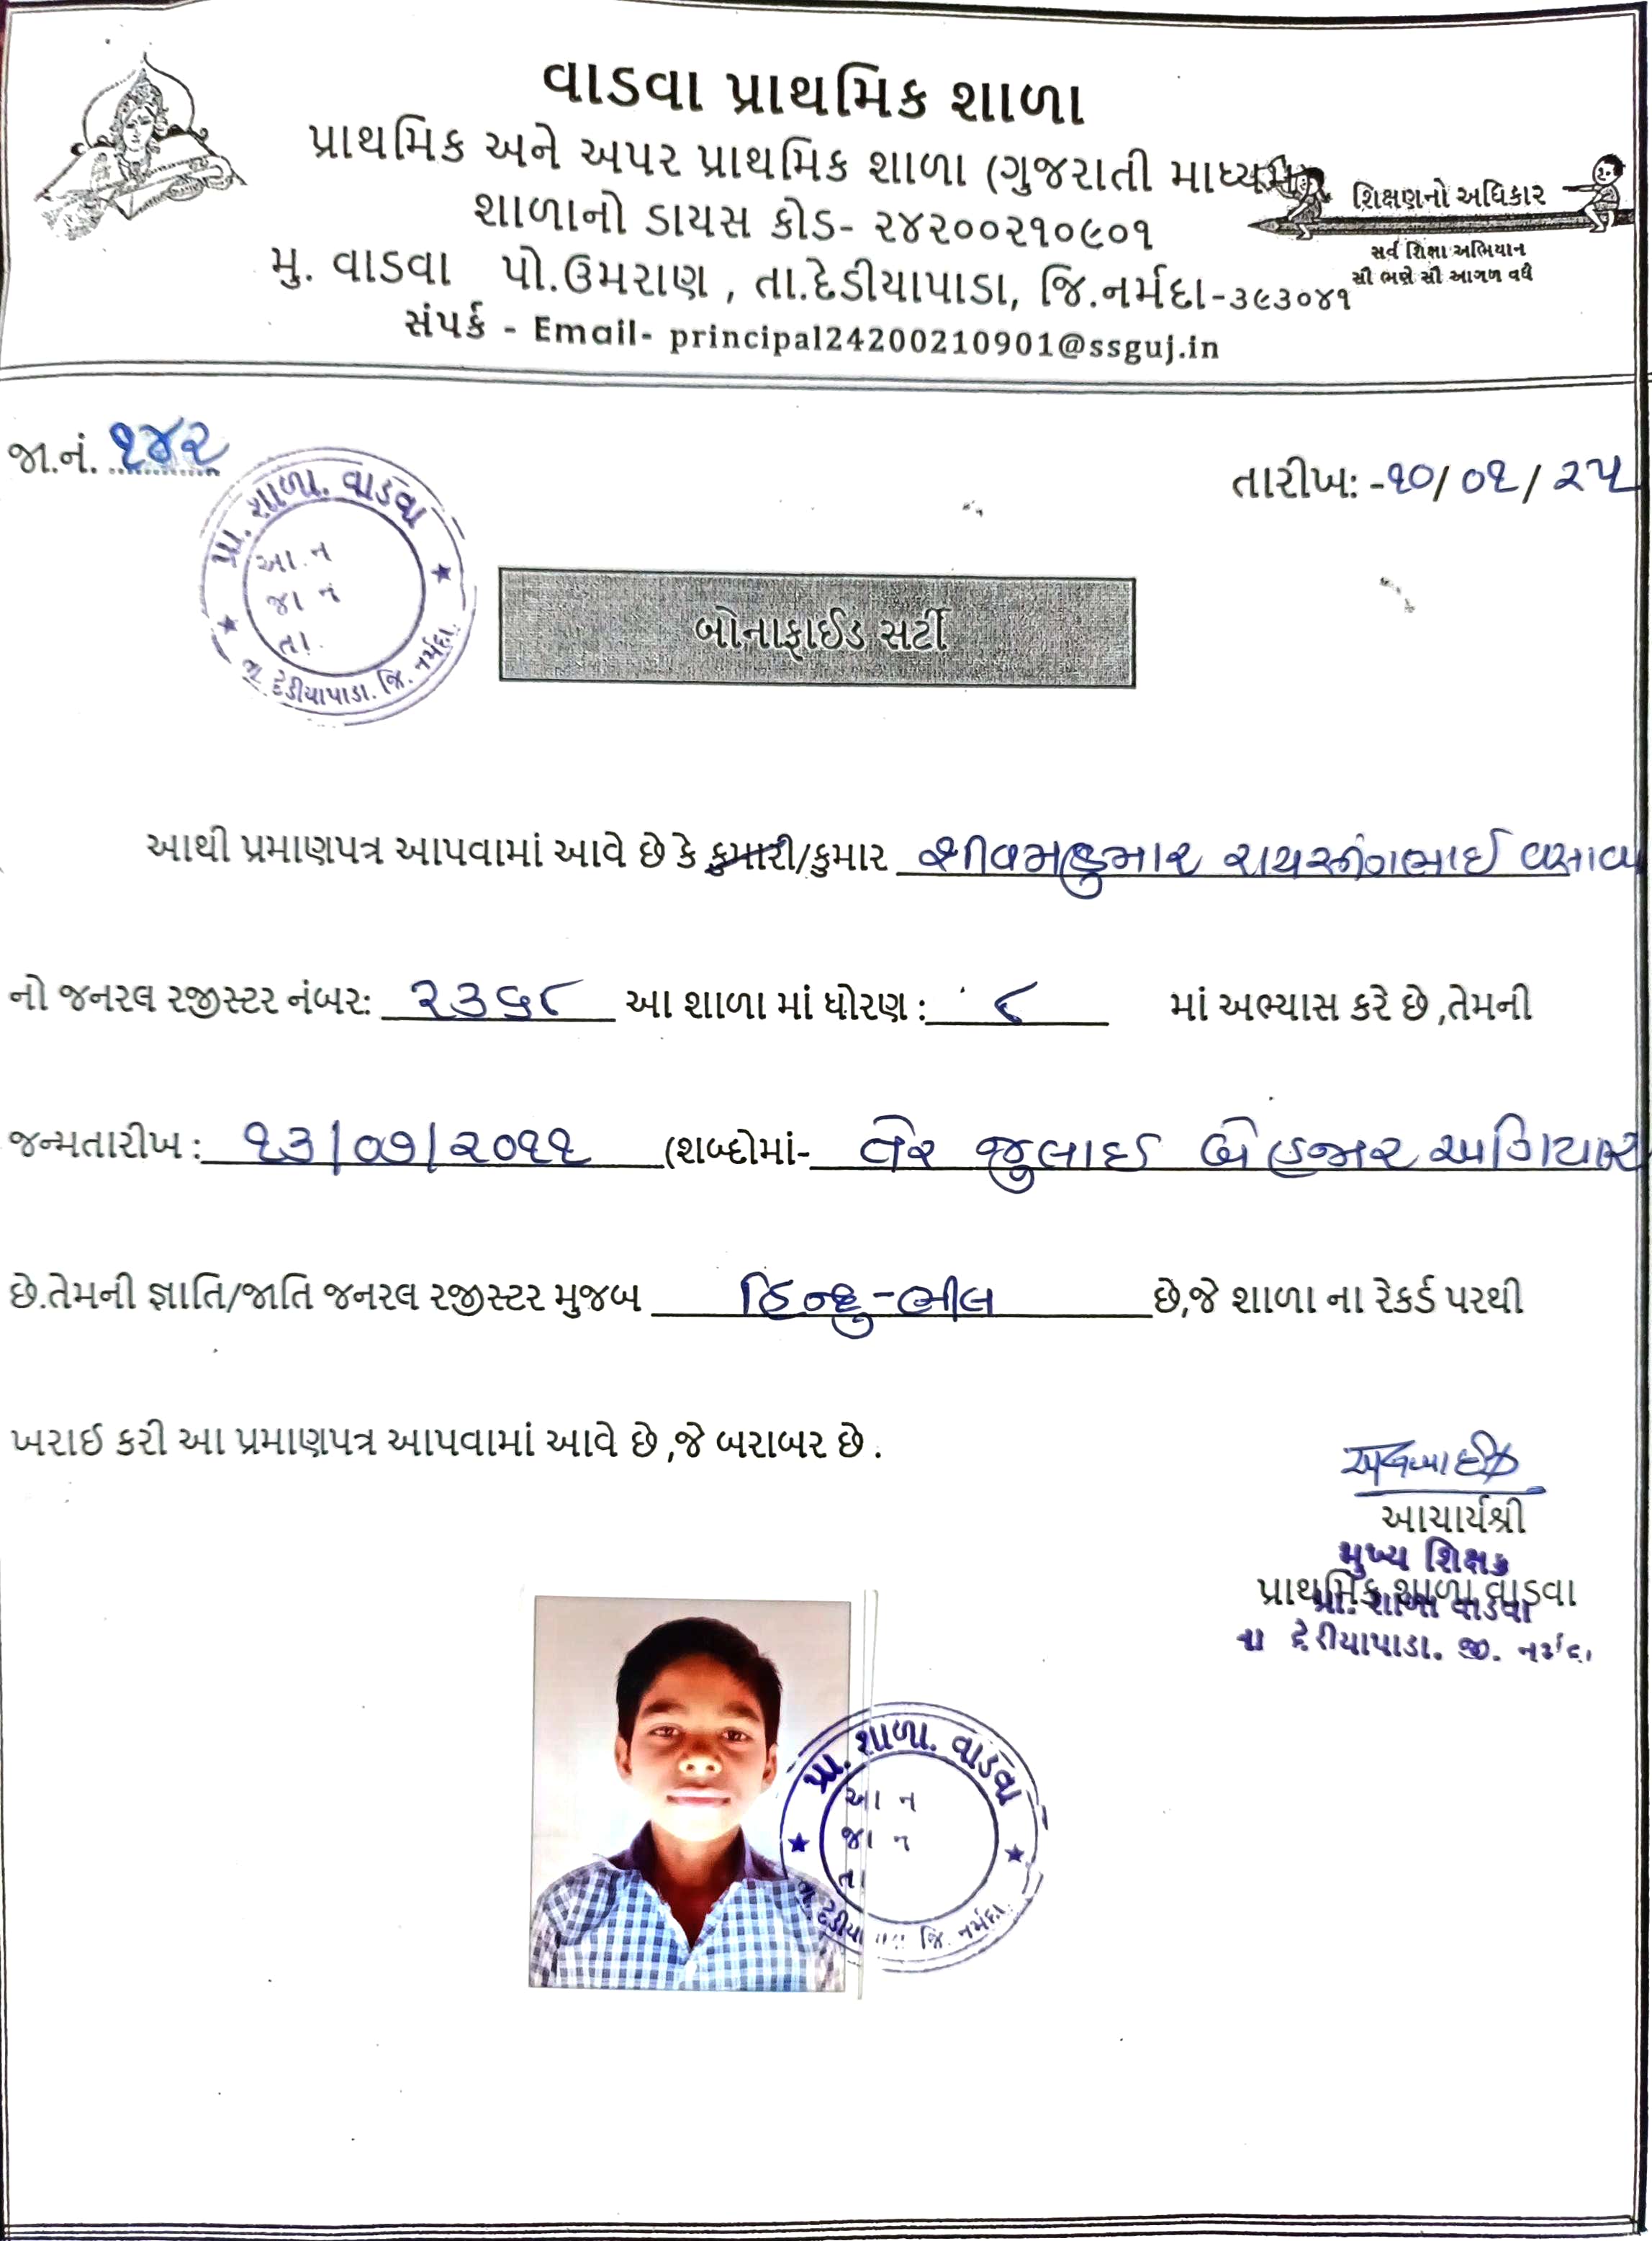 વાડવા પ્રાથમિક શાળા
પ્રાથમિક અને અપર પ્રાથમિક શાળા (ગુજરાતી માધ્યમ)
શાળાનો ડાયસ કોડ- ૨૪૨૦૦૨૧૦૯૦૧
મુ. વાડવા પો.ઉમરાણ , તા.દેડીયાપાડા, જિ.નર્મદા-૩૯૩૦૪૧
સંપર્ક - Email- principal24200210901@ssguj.in
શિક્ષણનો અધિકાર
સર્વ શિક્ષા અભિયાન
સૌ ભણે સૌ આગળ વધે
જા.નં. ૧૪૨
તારીખ: -૧૦/૦૧/૨૫
પ્રા. શાળા. વાડવા
આ. ન
જા ન
તા.
તા. દેડીયાપાડા. જિ. નર્મદા.
બોનાફાઈડ સર્ટી
આથી પ્રમાણપત્ર આપવામાં આવે છે કે કુમારી/કુમાર શીવમકુમાર રાયસીંગભાઈ વસાવા
નો જનરલ રજીસ્ટર નંબર: ૨૩૬૮ આ શાળા માં ધોરણ : ૮ માં અભ્યાસ કરે છે ,તેમની
જન્મતારીખ : ૧૩/૦૭/૨૦૧૧ (શબ્દોમાં- તેર જુલાઈ બે હજાર અગિયાર
છે.તેમની જ્ઞાતિ/જાતિ જનરલ રજીસ્ટર મુજબ હિન્દુ-ભીલ છે,જે શાળા ના રેકર્ડ પરથી
ખરાઈ કરી આ પ્રમાણપત્ર આપવામાં આવે છે ,જે બરાબર છે .
આચાર્યશ્રી
મુખ્ય શિક્ષક
પ્રાથમિક શાળા વાડવા
પ્રા. શાળા વાડવા
તા દેડીયાપાડા. જી. નર્મદા
પ્રા. શાળા. વાડવા
આ ન
જા ન
તા
તા. દેડીયાપાડા જિ. નર્મદા.